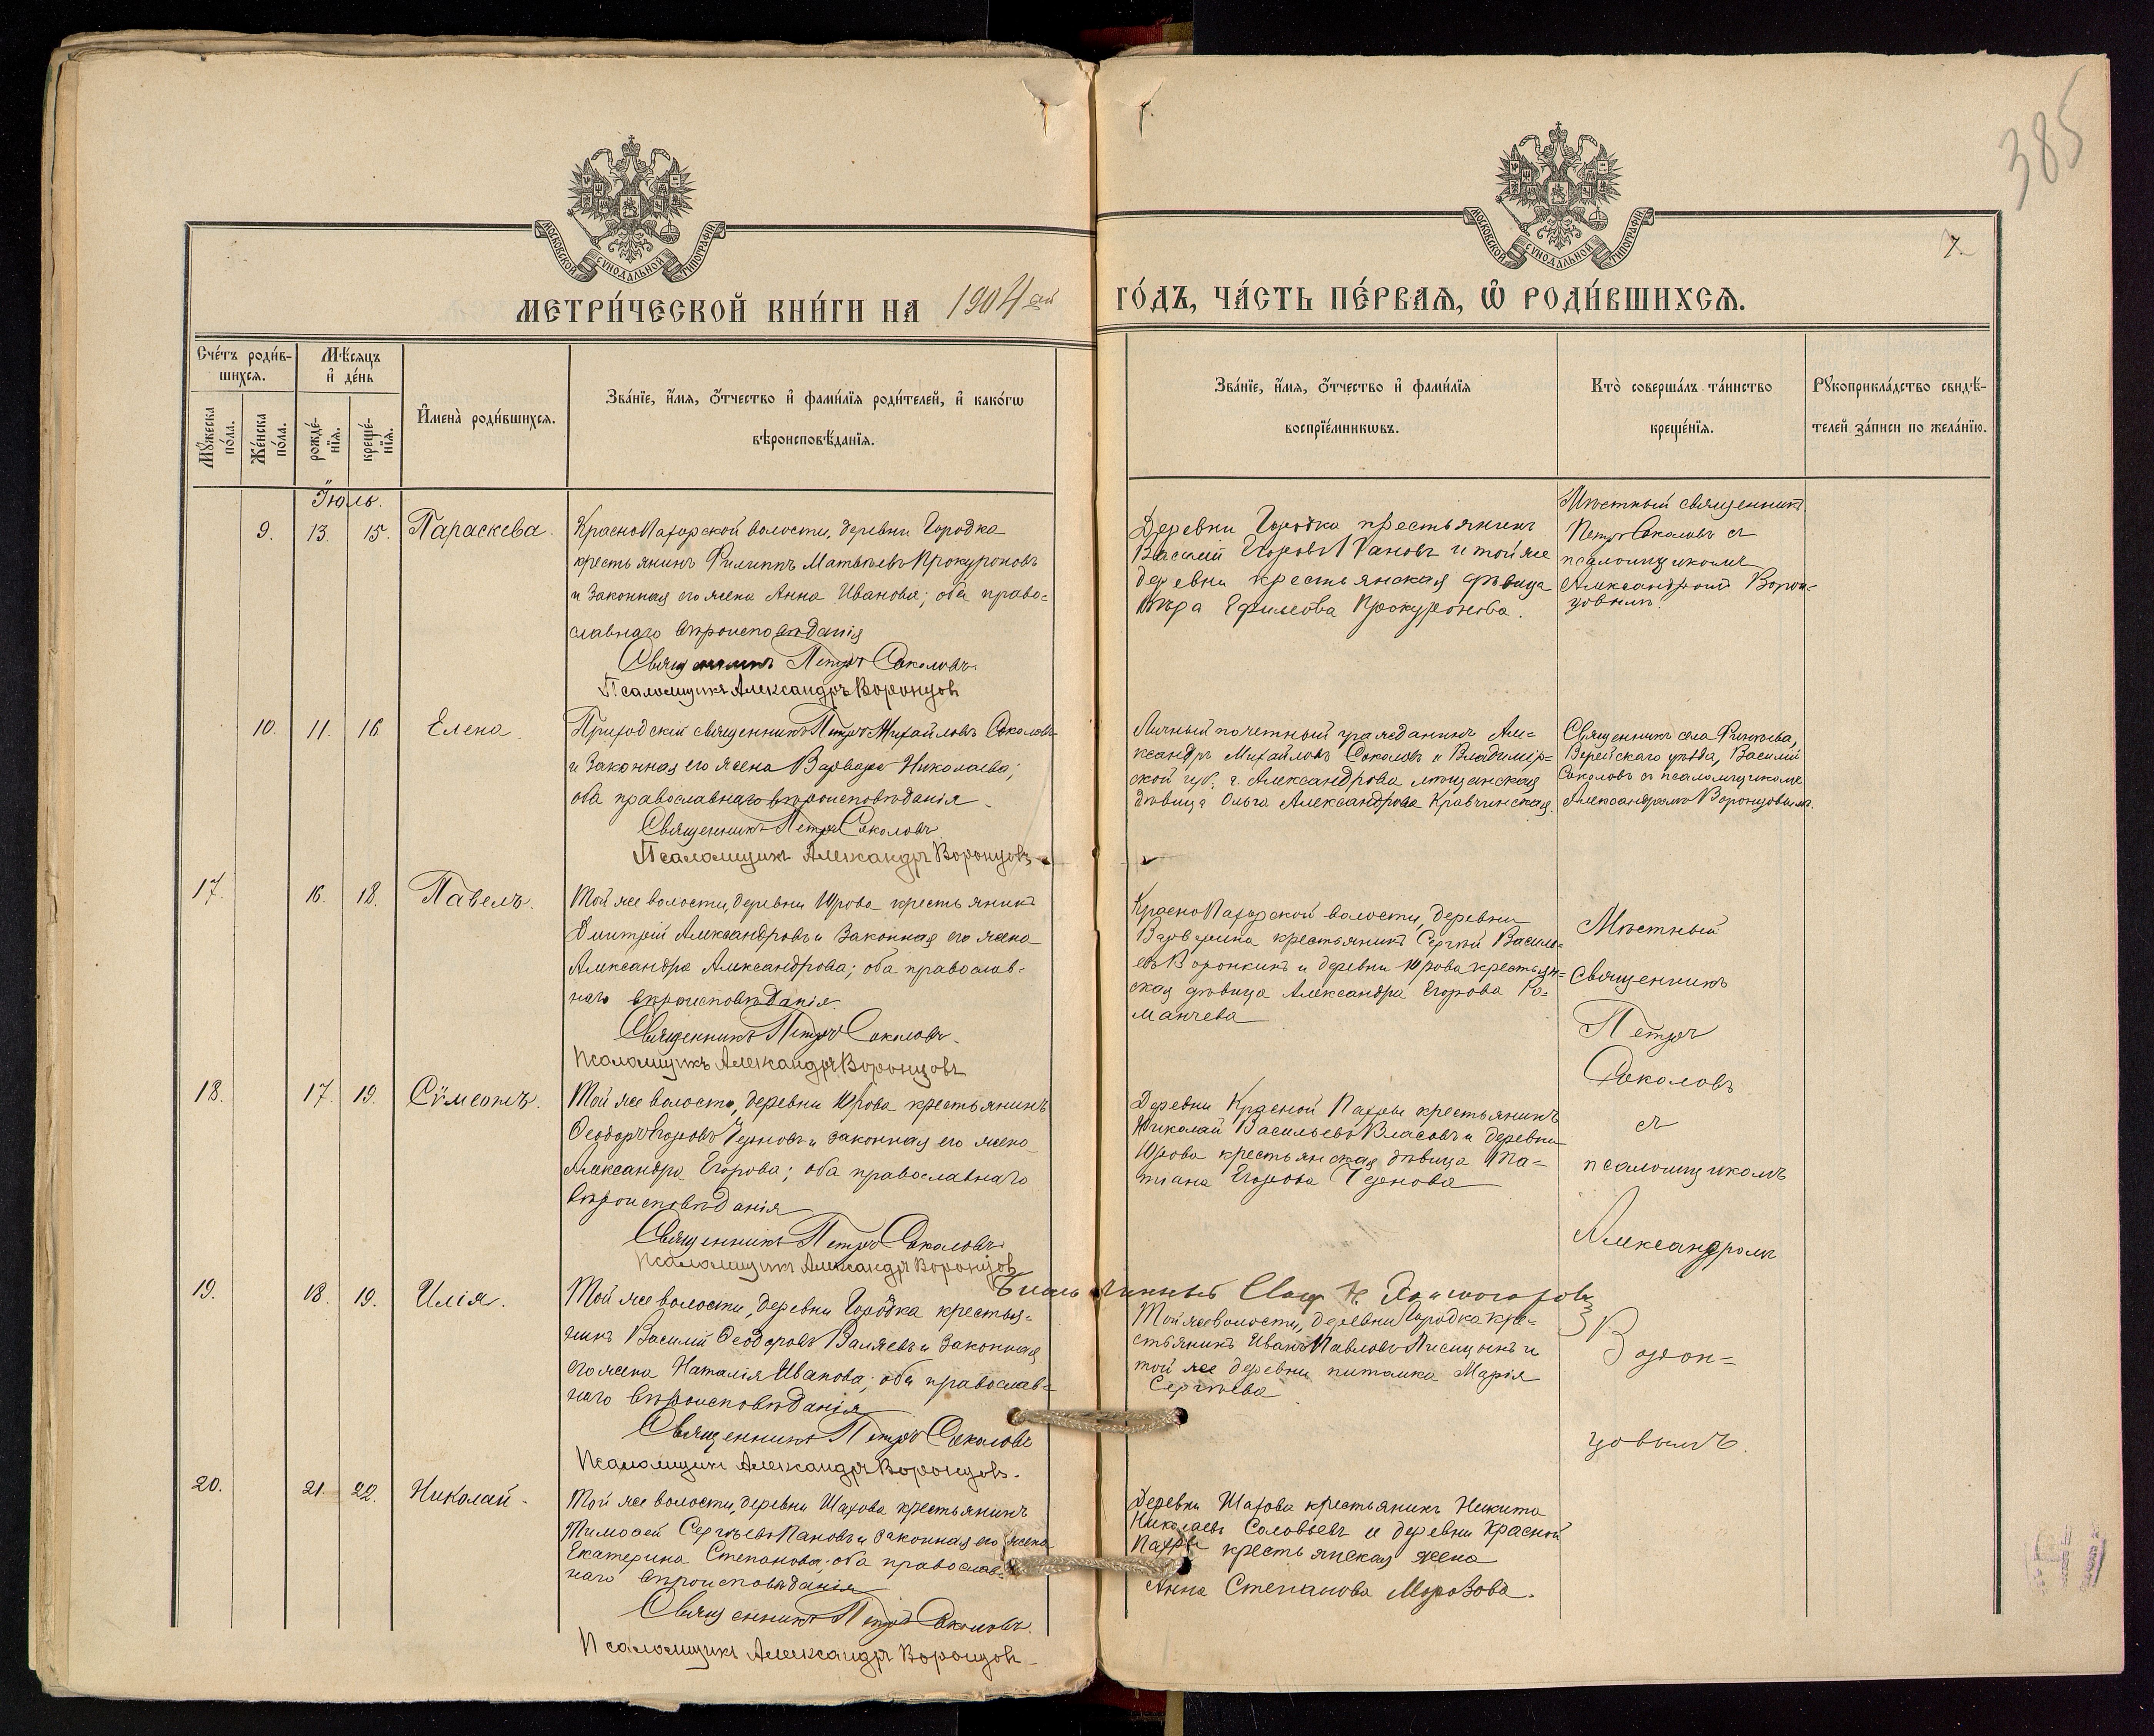 385
МОСКОВСКОЙ СѴНОДАЛЬНОЙ ТИПОГРАФІИ
МОСКОВСКОЙ СѴНОДАЛЬНОЙ ТИПОГРАФІИ
7.
МЕТРИ́ЧЕСКОЙ КНИ́ГИ НА 1904 ый
ГО́ДЪ, ЧА́СТЬ ПЕ́РВАѦ, Ѽ РОДИ́ВШИХСѦ.
Сче́тъ роди́в-
шихсѧ.
Мѣ́сѧцъ
и҆ де́нь
Мꙋ́жеска
по́ла.
Же́нска
по́ла.
рожде́-
нїѧ.
креще́-
нїѧ.
И҆мена̀ роди́вшихсѧ.
Зва́нїе, и҆́мѧ, ѻ҆́тчество и҆ фами́лїѧ роди́телей, и҆ како́гѡ
вѣроисповѣ́данїѧ.
Зва́нїе, и҆́мѧ, ѻ҆́тчество и҆ фами́лїѧ
воспрїе́мникѡвъ.
Кто̀ соверша́лъ та́инство
креще́нїѧ.
Рꙋкоприкла́дство свидѣ́-
телей за́писи по жела́нїю.
Іюль.
9. 13. 15. Параскева.
КрасноПахорской волости, деревни Городка
крестьянинъ Филиппъ Матвѣевъ Прокуроновъ
и законная его жена Анна Иванова; оба право=
славнаго вѣроисповѣданія
Священникъ Петръ Соколовъ.
Псаломщикъ Александръ Воронцовъ
Деревни Городка крестьянинъ
Василий Егоровъ Пановъ и той же
деревни крестьянская дѣвица
Вѣра Ефимова Прокуронова.
Мѣстный священникъ
Петръ Соколовъ съ
псаломщикомъ
Александромъ Ворон=
цовымъ.
10. 11. 16 Елена.
Приходскій священникъ Петръ Михайловъ Соколовъ
и законная его жена Варвара Николаева;
оба православнаго вѣроисповѣданія.
Священникъ Петръ Соколовъ
Псаломщикъ Александръ Воронцовъ
Личный почетный гражданинъ Але-
ксандръ Михайловъ Соколовъ и Владимір=
ской губ. г. Александрова мѣщанская
дѣвица Ольга Александрова Кравчинская.
Священникъ села
Верейскаго уѣзда, Василій
Соколовъ съ псаломщикомъ
Александромъ Воронцовымъ.
17. 16. 18. Павелъ.
Той же волости, деревни Юрова крестьянинъ
Димитрій Александровъ и законная его жена
Александра Александрова; оба православ-
наго вѣроисповѣданія.
Священникъ Петръ Соколовъ.
Псаломщикъ Александръ Воронцовъ
КрасноПахорской волости, деревни
Варварина крестьянинъ Сергѣй Василь=
евъ Воронкинъ и деревни Юрова крестьян=
ская дѣвица Александра Егорова Ро=
манчева
Мѣстный
священникъ
Петръ
Соколовъ
съ
псаломщикомъ
Александромъ
Ворон=
цовымъ.
18. 17. 19. Сѷмеонъ.
Той же волости, деревни Юрова крестьянинъ
Ѳеодоръ Егоровъ Черновъ и законная его жена
Александра Егорова; оба православнаго
вѣроисповѣданія
Священникъ Петръ Соколовъ
Псаломщикъ Александръ Воронцовъ
Деревни Красной Пахры крестьянинъ
Николай Васильевъ Власовъ и деревни
Юрова крестьянская дѣвица Та=
тіана Егорова Чернова
Благочинный Свящ. Н.
19. 18. 19. Илія.
Той же волости, деревни Городка крестья=
нинъ Василий Ѳеодоровъ Валяевъ и законная
его жена Наталія Иванова; оба православ=
наго вѣроисповѣданія
Священникъ Петръ Соколовъ
Псаломщикъ Александръ Воронцовъ.
Той же волости, деревни Городка кре-
стьянинъ Иванъ Павловъ Лисицынъ и
той же деревни питомка Марія
Сергѣева
20. 21. 22. Николай.
Той же волости, деревни Шахова крестьянинъ
Тимоѳей Сергѣевъ Пановъ и законная его жена
Екатерина Степанова; оба православ=
наго вѣроисповѣданія
Священникъ Петръ Соколовъ.
Псаломщикъ Александръ Воронцовъ
Деревни Шахова крестьянинъ Никита
Николаевъ Соловьевъ и деревни Красной
Пахры крестьянская жена
Анна Степанова Морозова.